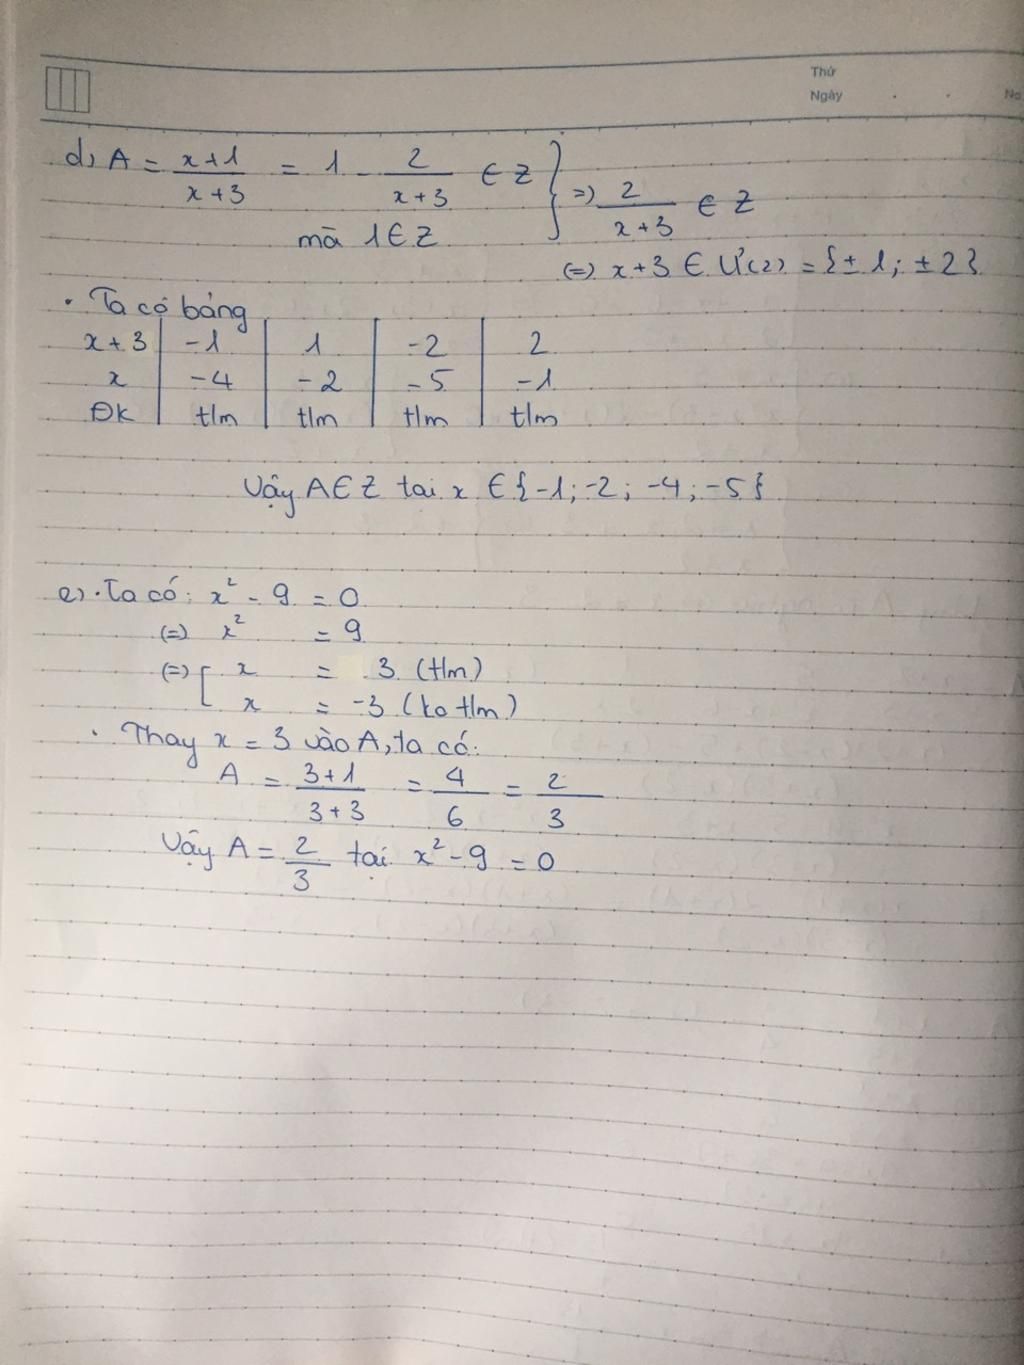 Thứ
Ngày . . No
d, A = x+1 / x+3 = 1 - 2 / x+3 ∈ Z } => 2 / x+3 ∈ Z
mà 1 ∈ Z
(=) x+3 ∈ Ư(2) = {± 1; ± 2}
• Ta có bảng
x+3 | -1 | 1 | -2 | 2
x | -4 | -2 | -5 | -1
ĐK | tlm | tlm | tlm | tlm
Vậy A ∈ Z tại x ∈ {-1; -2; -4; -5}
e, • Ta có: x² - 9 = 0
(=) x² = 9
(=) [ x = 3 (tlm)
x = -3 (ko tlm)
• Thay x = 3 vào A, ta có:
A = 3+1 / 3+3 = 4 / 6 = 2 / 3
Vậy A = 2 / 3 tại x² - 9 = 0